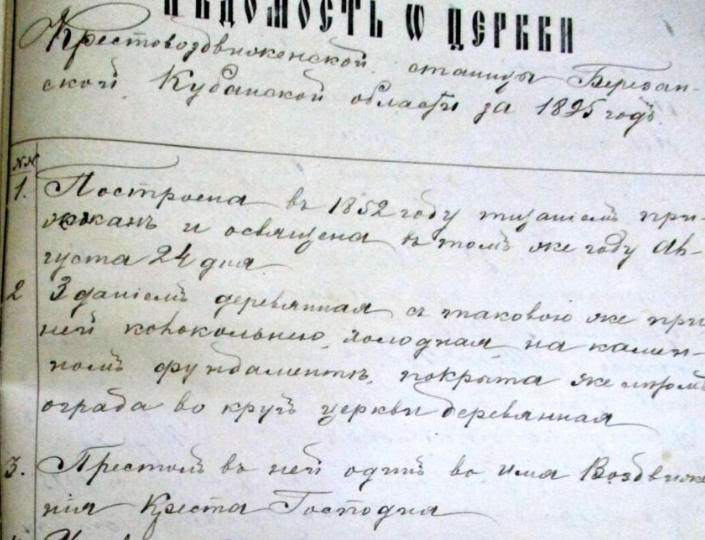 ВѢДОМОСТЬ Ѡ ЦЕРКВИ
Крестовоздвиженской станицы Березан-
ской Кубанской области за 1895 годъ.
№№
1. Построена въ 1852 году тщаніемъ при-
хожанъ и освящена въ томъ же году Ав-
густа 24 дня
2 Зданіемъ деревянная съ таковою же при
ней колокольнею, холодная, на камен-
номъ фундаментѣ, покрыта желѣзомъ
ограда во кругъ церкви деревянная
3. Престолъ въ ней одинъ во имя Воздвиже
нія Креста Господня